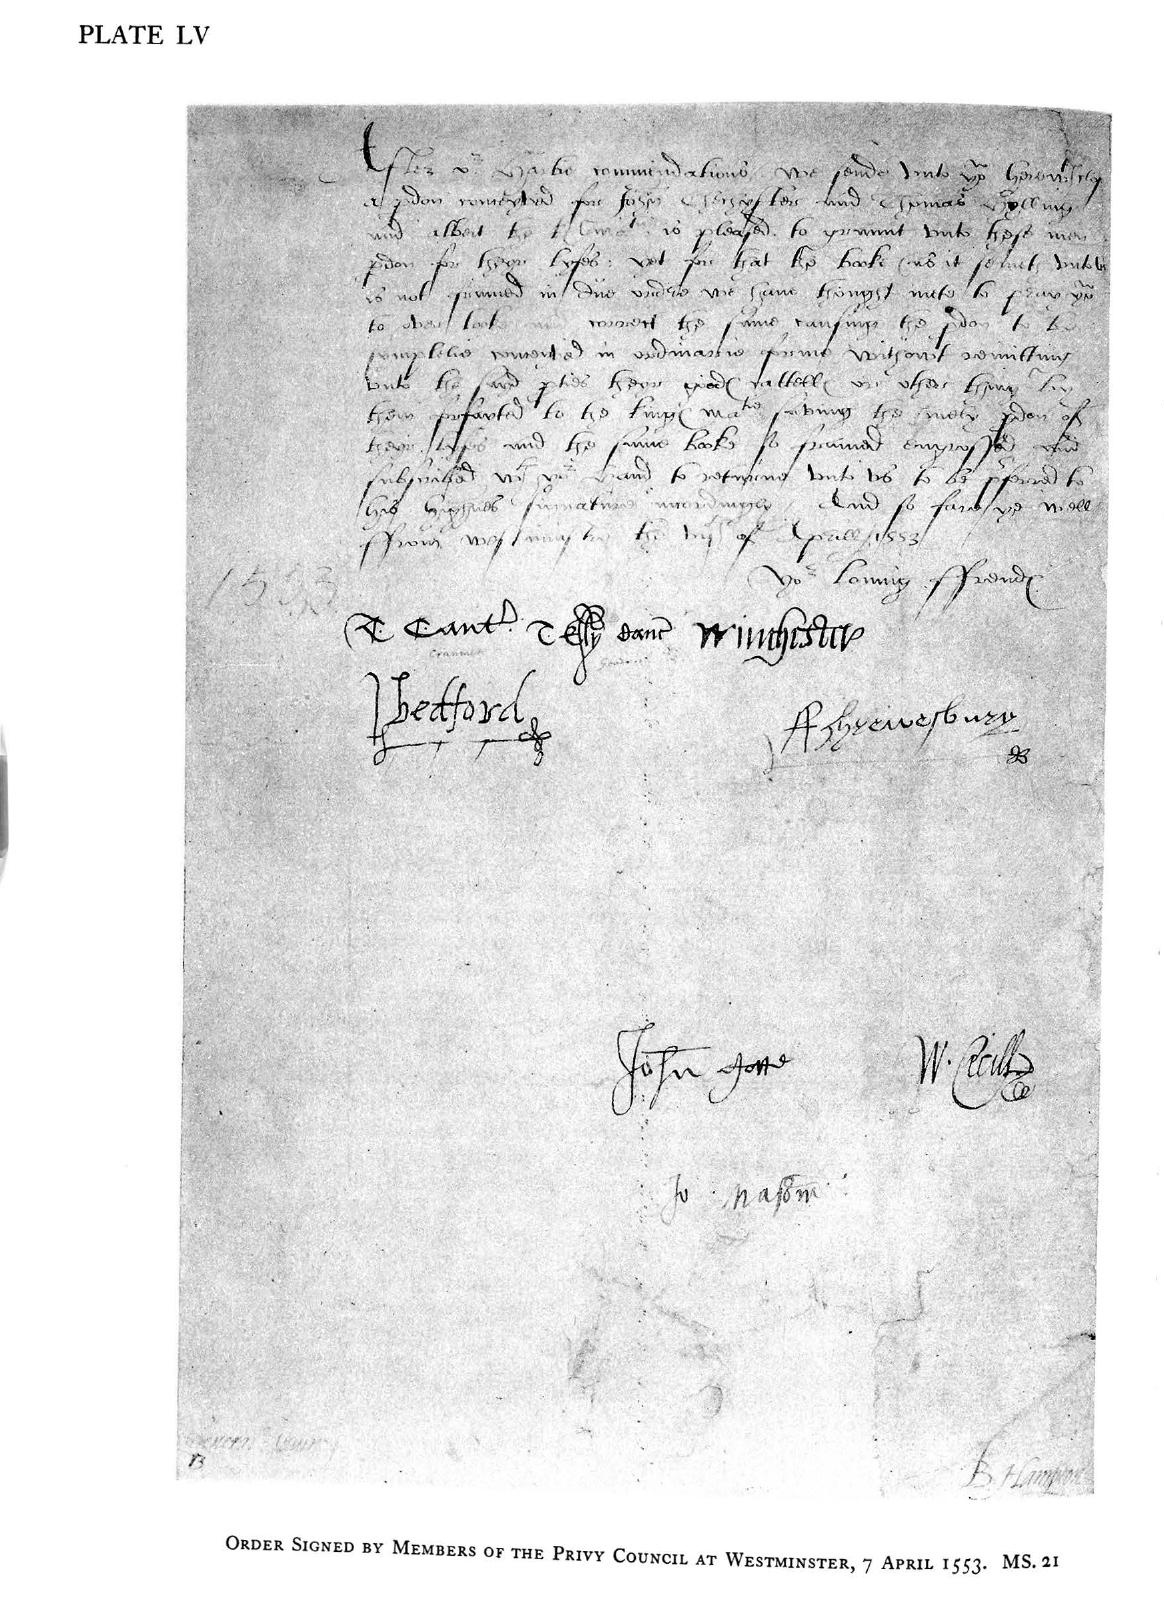 PLATE LV
After or hartie commendations. We sende unto yow herewt
a pdon conceyved for John Chichester and Thomas
and albeit the K. matie is pleased to graunt unto these men
pdon for their lyfes: yet for that the booke (as it semeth unto us
is not framed in due ordre we have thought mete to pray yow
to over looke and correct the same causing the pdon to be
symplelie conceived in ordinarie forme without remitting
unto the said pties their goodes cattells or other thing by
them forfaited to the kinges matie saving the merely pdon of
their lyfes and the same booke so framed engrossed and
subscribed wt yor hand to retourne unto us to be pferred to
his highnes signature accordingly. And so fare ye well
ffrom westminster the vijth of Aprill 1553
Yor loving ffrendes
1553
T Cant. T Ely Canc Winchester
Cranmer Goodrich
J Bedford F Shrewesbury
John Gate W. Cecill
Jo Mason
B
B Hampton
ORDER SIGNED BY MEMBERS OF THE PRIVY COUNCIL AT WESTMINSTER, 7 APRIL 1553. MS. 21